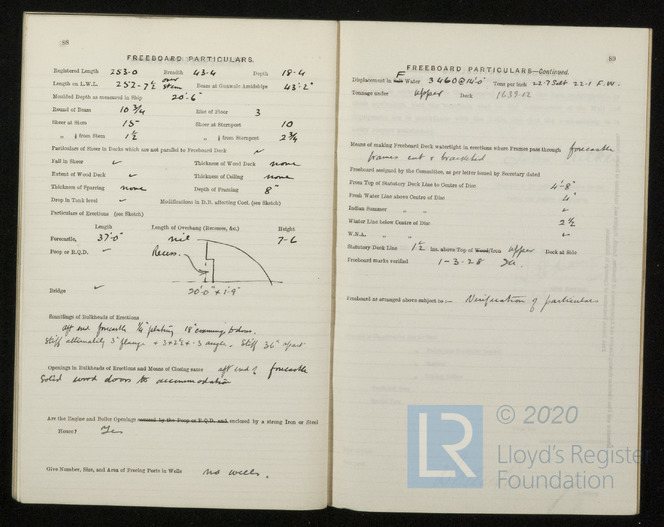 88
FREEBOARD PARTICULARS.
Registered Length 253·0 Breadth 43·4 Depth 18·4
Length on L.W.L. 252-7½ over stem Beam at Gunwale Amidships 43'-2"
Moulded Depth as measured in Ship 20'-6"
Round of Beam 10¾ Rise of Floor 3
Sheer at Stem 15" Sheer at Sternpost 10
" ⅛ from Stem 1½ " ⅛ from Sternpost 2¾
Particulars of Sheer in Decks which are not parallel to Freeboard Deck ✓
Fall in Sheer ✓ Thickness of Wood Deck none
Extent of Wood Deck ✓ Thickness of Ceiling none
Thickness of Sparring none Depth of Framing 8"
Drop in Tank level ✓ Modifications in D.B. affecting Coef. (see Sketch)
Particulars of Erections (see Sketch)
Length Length of Overhang (Recesses, &c.) Height
Forecastle, 37'·0" nil 7-6
Poop or R.Q.D. ✓ Recess.
Bridge ✓ 20'·0" × 1'·9"
Scantlings of Bulkheads of Erections
aft end forecastle ¼" plating 18" coamings to doors.
Stiff alternately 3" flange & 3×2½×·3 angle. Stiff 36" apart
Openings in Bulkheads of Erections and Means of Closing same aft end of forecastle
Solid wood doors to accommodation
Are the Engine and Boiler Openings covered by the Poop or R.Q.D. and enclosed by a strong Iron or Steel
House? Yes
Give Number, Size, and Area of Freeing Ports in Wells no wells.
89
FREEBOARD PARTICULARS—Continued.
Displacement in F Water 3460@14'0" Tons per inch 22·7 Salt 22·1 F.W.
Tonnage under upper Deck 1639·12
Means of making Freeboard Deck watertight in erections where Frames pass through forecastle
frames cut & bracketed
Freeboard assigned by the Committee, as per letter issued by Secretary dated
From Top of Statutory Deck Line to Centre of Disc 4'-8"
Fresh Water Line above Centre of Disc 4"
Indian Summer " " ✓
Winter Line below Centre of Disc 2½
W.N.A. " " ✓
Statutory Deck Line 1½ ins. above Top of Wood/Iron upper Deck at Side
Freeboard marks verified 1-3-28
Freeboard as arranged above subject to :— Verification of particulars
© 2020
LR
Lloyd's Register
Foundation